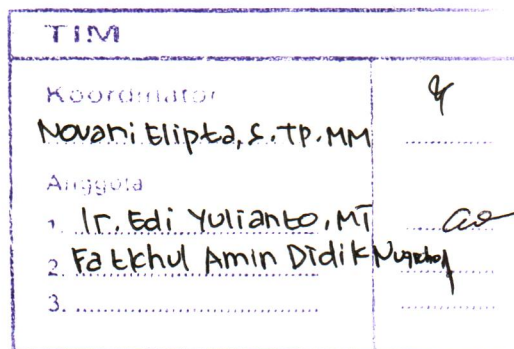 TIM
Koordinator
Novani Elipta, S.TP.MM
Anggota
1. Ir. Edi Yulianto, MT
2. Fatkhul Amin Didik
3.